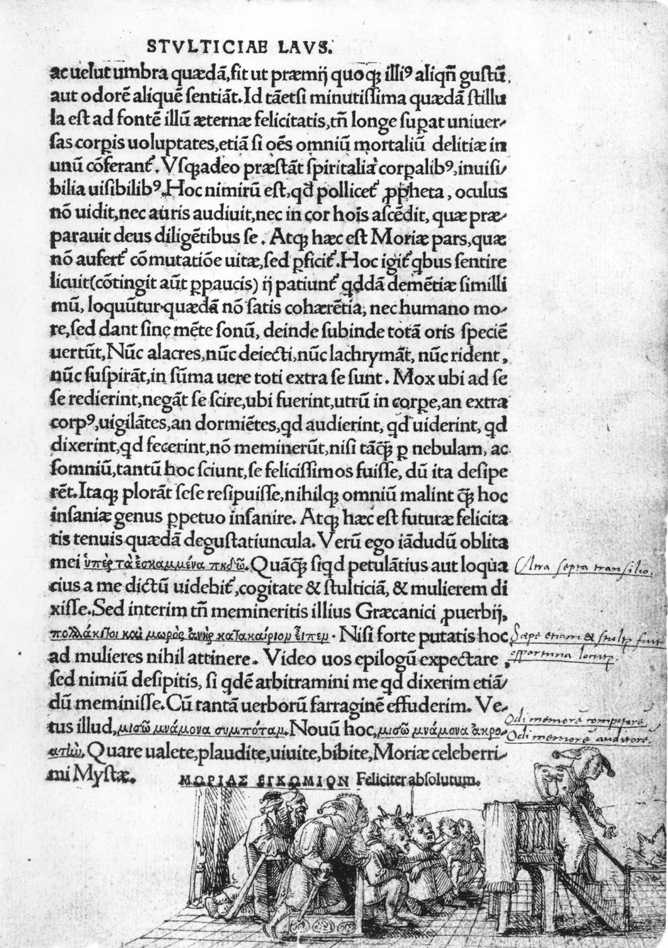 STVLTICIAE LAVS.
ac uelut umbra quædā, fit ut præmij quoqꝫ illi⁹ aliqñ gustū,
aut odorē aliquē sentiāt. Id tāetsi minutissima quædā stillu
la est ad fontē illū æternæ felicitatis, tñ longe sup̱at uniuer-
sas corp̱is uoluptates, etiā si oēs omniū mortaliū delitiæ in
unū cōferant᷑. Vsqꝫadeo præstāt spiritalia corp̱alib⁹, inuisi-
bilia uisibilib⁹. Hoc nimirū est, qđ pollicet᷑ ꝓpheta, oculus
nō uidit, nec auris audiuit, nec in cor hoīs ascēdit, quæ præ-
parauit deus diligētibus se. Atqꝫ hæc est Moriæ pars, quæ
nō aufert᷑ cōmutatiōe uitæ, sed ꝑficit᷑. Hoc igit᷑ qbus sentire
licuit (cōtingit aūt ꝑpaucis) ij patiunt᷑ qddā demētiæ simillí
mū, loquūtur quædā nō satis cohærētia, nec humano mo-
re, sed dant sine mēte sonū, deinde subinde totā oris speciē
uertūt, Nūc alacres, nūc deiecti, nūc lachrymāt, nūc rident,
nūc suspirāt, in sūma uere toti extra se sunt. Mox ubi ad se
se redierint, negāt se scire, ubi fuerint, utrū in corꝑe, an extra
corp⁹, uigilātes, an dormiētes, qd audierint, qd uiderint, qd
dixerint, qd fecerint, nō meminerūt, nisi tāq̄ꝫ ꝑ nebulam, ac
somniū, tantū hoc sciunt, se felicissimos fuisse, dū ita desipe
rēt. Itaqꝫ plorāt sese resipuisse, nihilqꝫ omniū malint q̄ꝫ hoc
insaniæ genus ꝑpetuo insanire. Atqꝫ hæc est futuræ felicita
tis tenuis quædā degustatiuncula. Verū ego iādudū oblita
mei ὑπὲρ τὰ ἐσκαμμένα πηδῶ. Quāq̄ꝫ siqd petulātius aut loqua
cius a me dictū uidebit᷑, cogitate & stulticiā, & mulierem di
xisse. Sed interim tñ memineritis illius Græcanici ꝓuerbij,
πολλάκι τοι καὶ μωρὸς ἀνὴρ κατακαίριον εἶπεν. Nisi forte putatis hoc
ad mulieres nihil attinere. Video uos epilogū expectare,
sed nimiū desipitis, si qdē arbitramini me qd dixerim etiā
dū meminisse. Cū tantā uerborū farraginē effuderim. Ve-
tus illud, μισῶ μνάμονα συμπόταμ. Nouū hoc, μισῶ μνάμονα ἀκρο
ατὴν. Quare ualete, plaudite, uiuite, bibite, Moriæ celeberri
mi Mystæ.
ΜΩΡΙΑΣ ΕΓΚΩΜΙΟΝ Feliciter absolutum.
Vltra septa transilio.
Sæpe etiam & stultus fuit
opportuna locutus.
Odi memorē compotorē
Odi memorē auditorē.